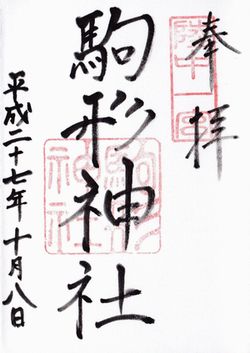 奉拝
陸中一宮
駒形神社
駒形神社
平成二十七年十月八日